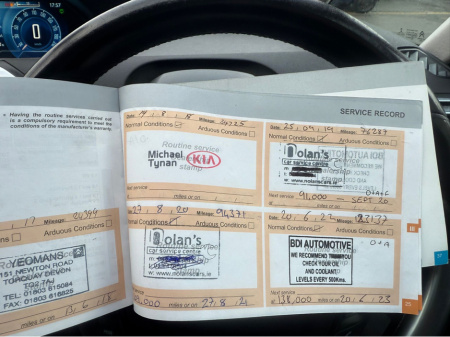 17:57
0
• Having the routine services carried out
is a compulsory requirement to meet the
conditions of the manufacturer's warranty.
SERVICE RECORD
Mileage:
Arduous Conditions
YEOMANS
151 NEWTON ROAD
TORQUAY DEVON
TEL: 01803 615064
FAX: 01803 616825
miles or on
Date: Mileage:
Normal Conditions Arduous Conditions
Routine service
stamp
Michael
Tynan KIA
Next service
at miles or on
Date: 25.09.19 Mileage: 76287
Normal Conditions Arduous Conditions
Nolan's
car service centre
w: www.nolanscars.ie
Next service
at 91,000 - SEPT 20
27.8.20 Mileage: 94371
Normal Conditions Arduous Conditions
Nolan's
car service centre
w: www.nolanscars.ie
Next service
miles or on 27.8.21
Date: 20.6.22 Mileage:
Normal Conditions Arduous Conditions
BDI AUTOMOTIVE
WE RECOMMEND THAT YOU
CHECK YOUR OIL
AND COOLANT
LEVELS EVERY 500Kms.
Next service
at 138,000 miles or on 20.6.23